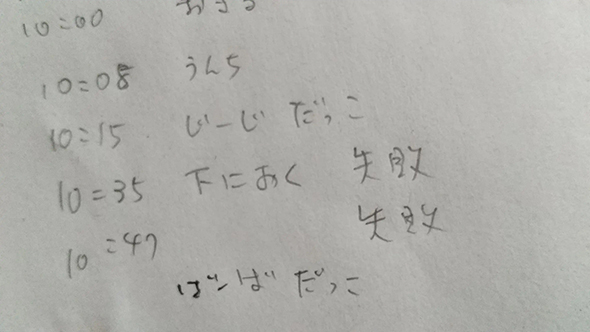 10:00 おきる
10:08 うんち
10:15 じーじ だっこ
10:35 下におく 失敗
10:47 失敗
ばーば だっこ